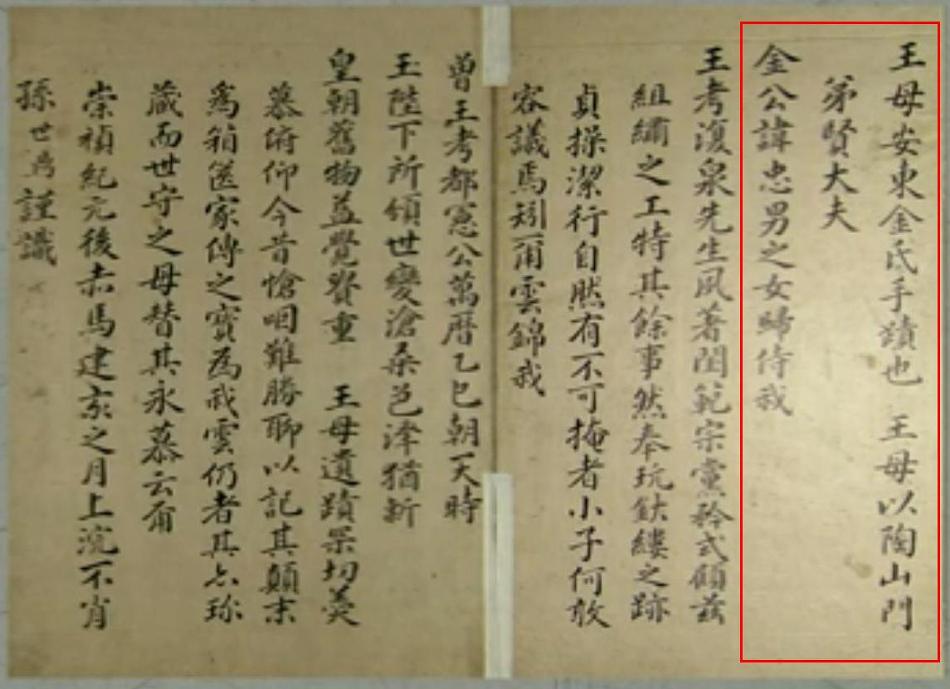 王母安東金氏手蹟也 王母以陶山門
弟賢大夫
金公諱忠男之女歸侍我
王考溪泉先生夙著閨範宗黨矜式顧玆
組繡之工特其餘事然奉玩鈇縷之跡
貞操潔行自然有不可掩者小子何敢
容議焉矧爾雲錦我
曾王考都憲公萬曆乙巳朝天時
玉陛下所頒世變滄桑色澤猶新
皇朝舊物益覺貴重 王母遺蹟采切羹
慕俯仰今昔愴咽難勝聊以記其顚末
爲箱篋家傳之寶爲我雲仍者其亦珍
藏而世守之毋替其永慕云爾
崇禎紀元後赤馬建亥之月上浣不肖
孫世爲謹識